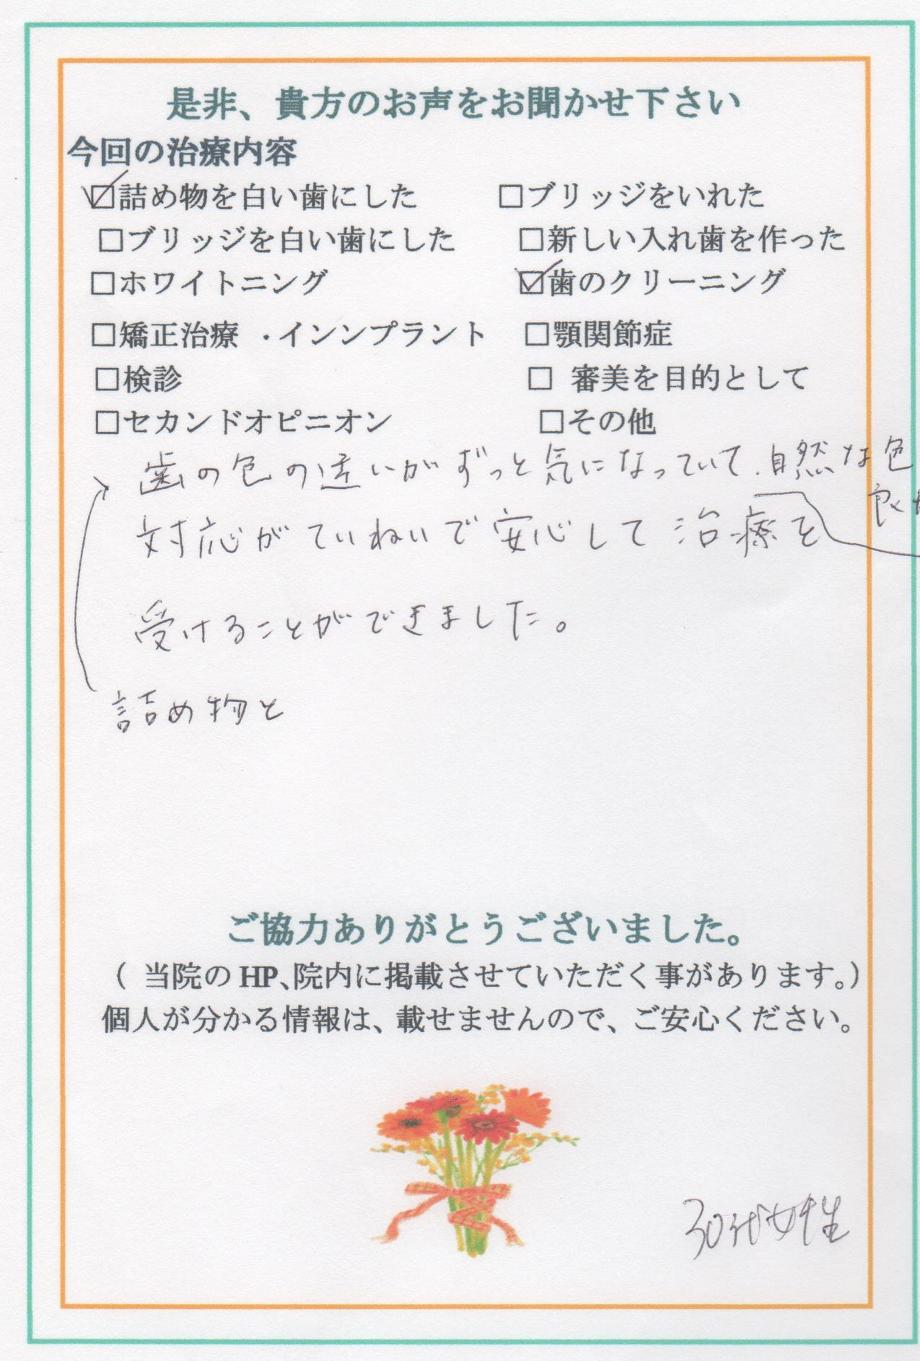 是非、貴方のお声をお聞かせ下さい
今回の治療内容
☑詰め物を白い歯にした □ブリッジをいれた
□ブリッジを白い歯にした □新しい入れ歯を作った
□ホワイトニング ☑歯のクリーニング
□矯正治療 ・インンプラント □顎関節症
□検診 □ 審美を目的として
□セカンドオピニオン □その他
歯の色の違いがずっと気になっていて、自然な色
良か
対応がていねいで安心して治療を
受けることができました。
詰め物と
ご協力ありがとうございました。
( 当院のHP、院内に掲載させていただく事があります。)
個人が分かる情報は、載せませんので、ご安心ください。
30代女性